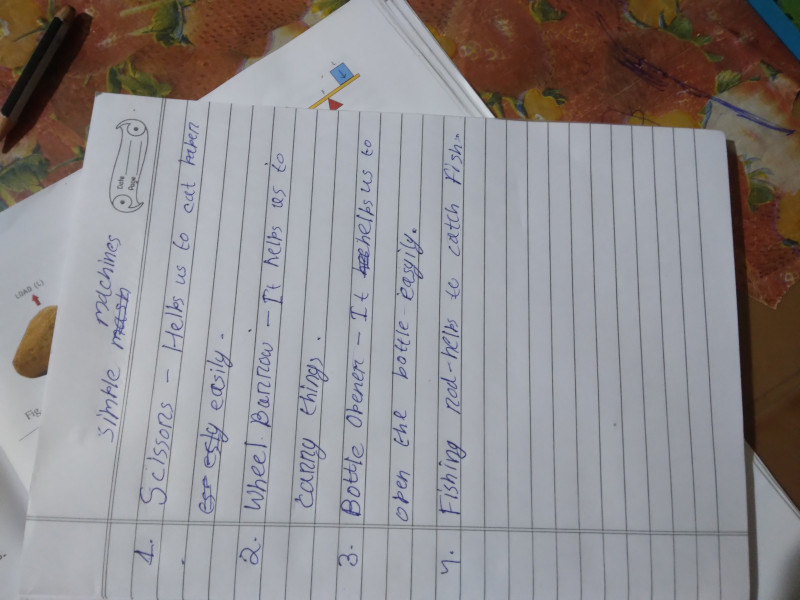 Date
Page
simple machines
1. Scissors - Helps us to cut paper
easily.
2. Wheel Barrow - It helps us to
carry things.
3. Bottle Opener - It helps us to
open the bottle easyily.
4. Fishing rod - helps to catch Fish.
LOAD (L)
Fig